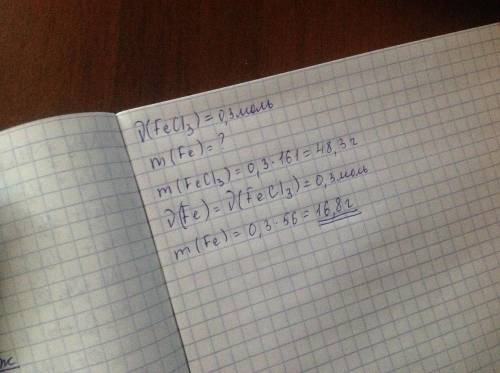 ν(FeCl₃) = 0,3 моль
m(Fe) = ?
m(FeCl₃) = 0,3·161 = 48,3 г
ν(Fe) = ν(FeCl₃) = 0,3 моль
m(Fe) = 0,3·56 = 16,8 г